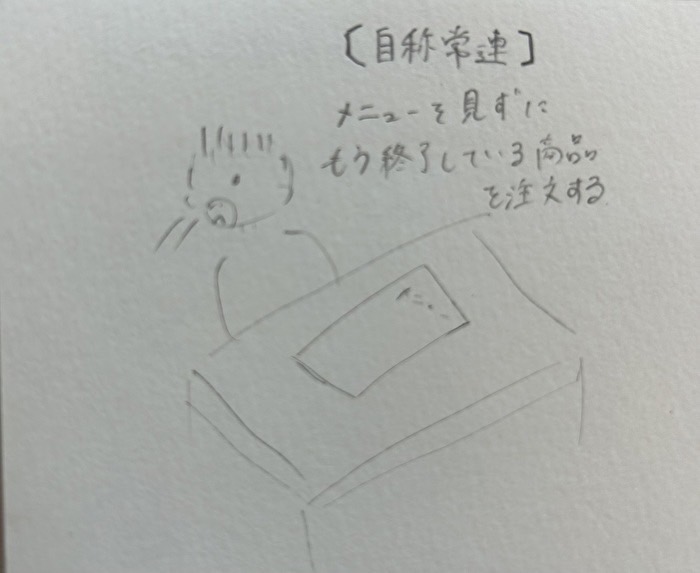 ［自称常連］
メニューを見ずに
もう終了している商品
を注文する
メニュー